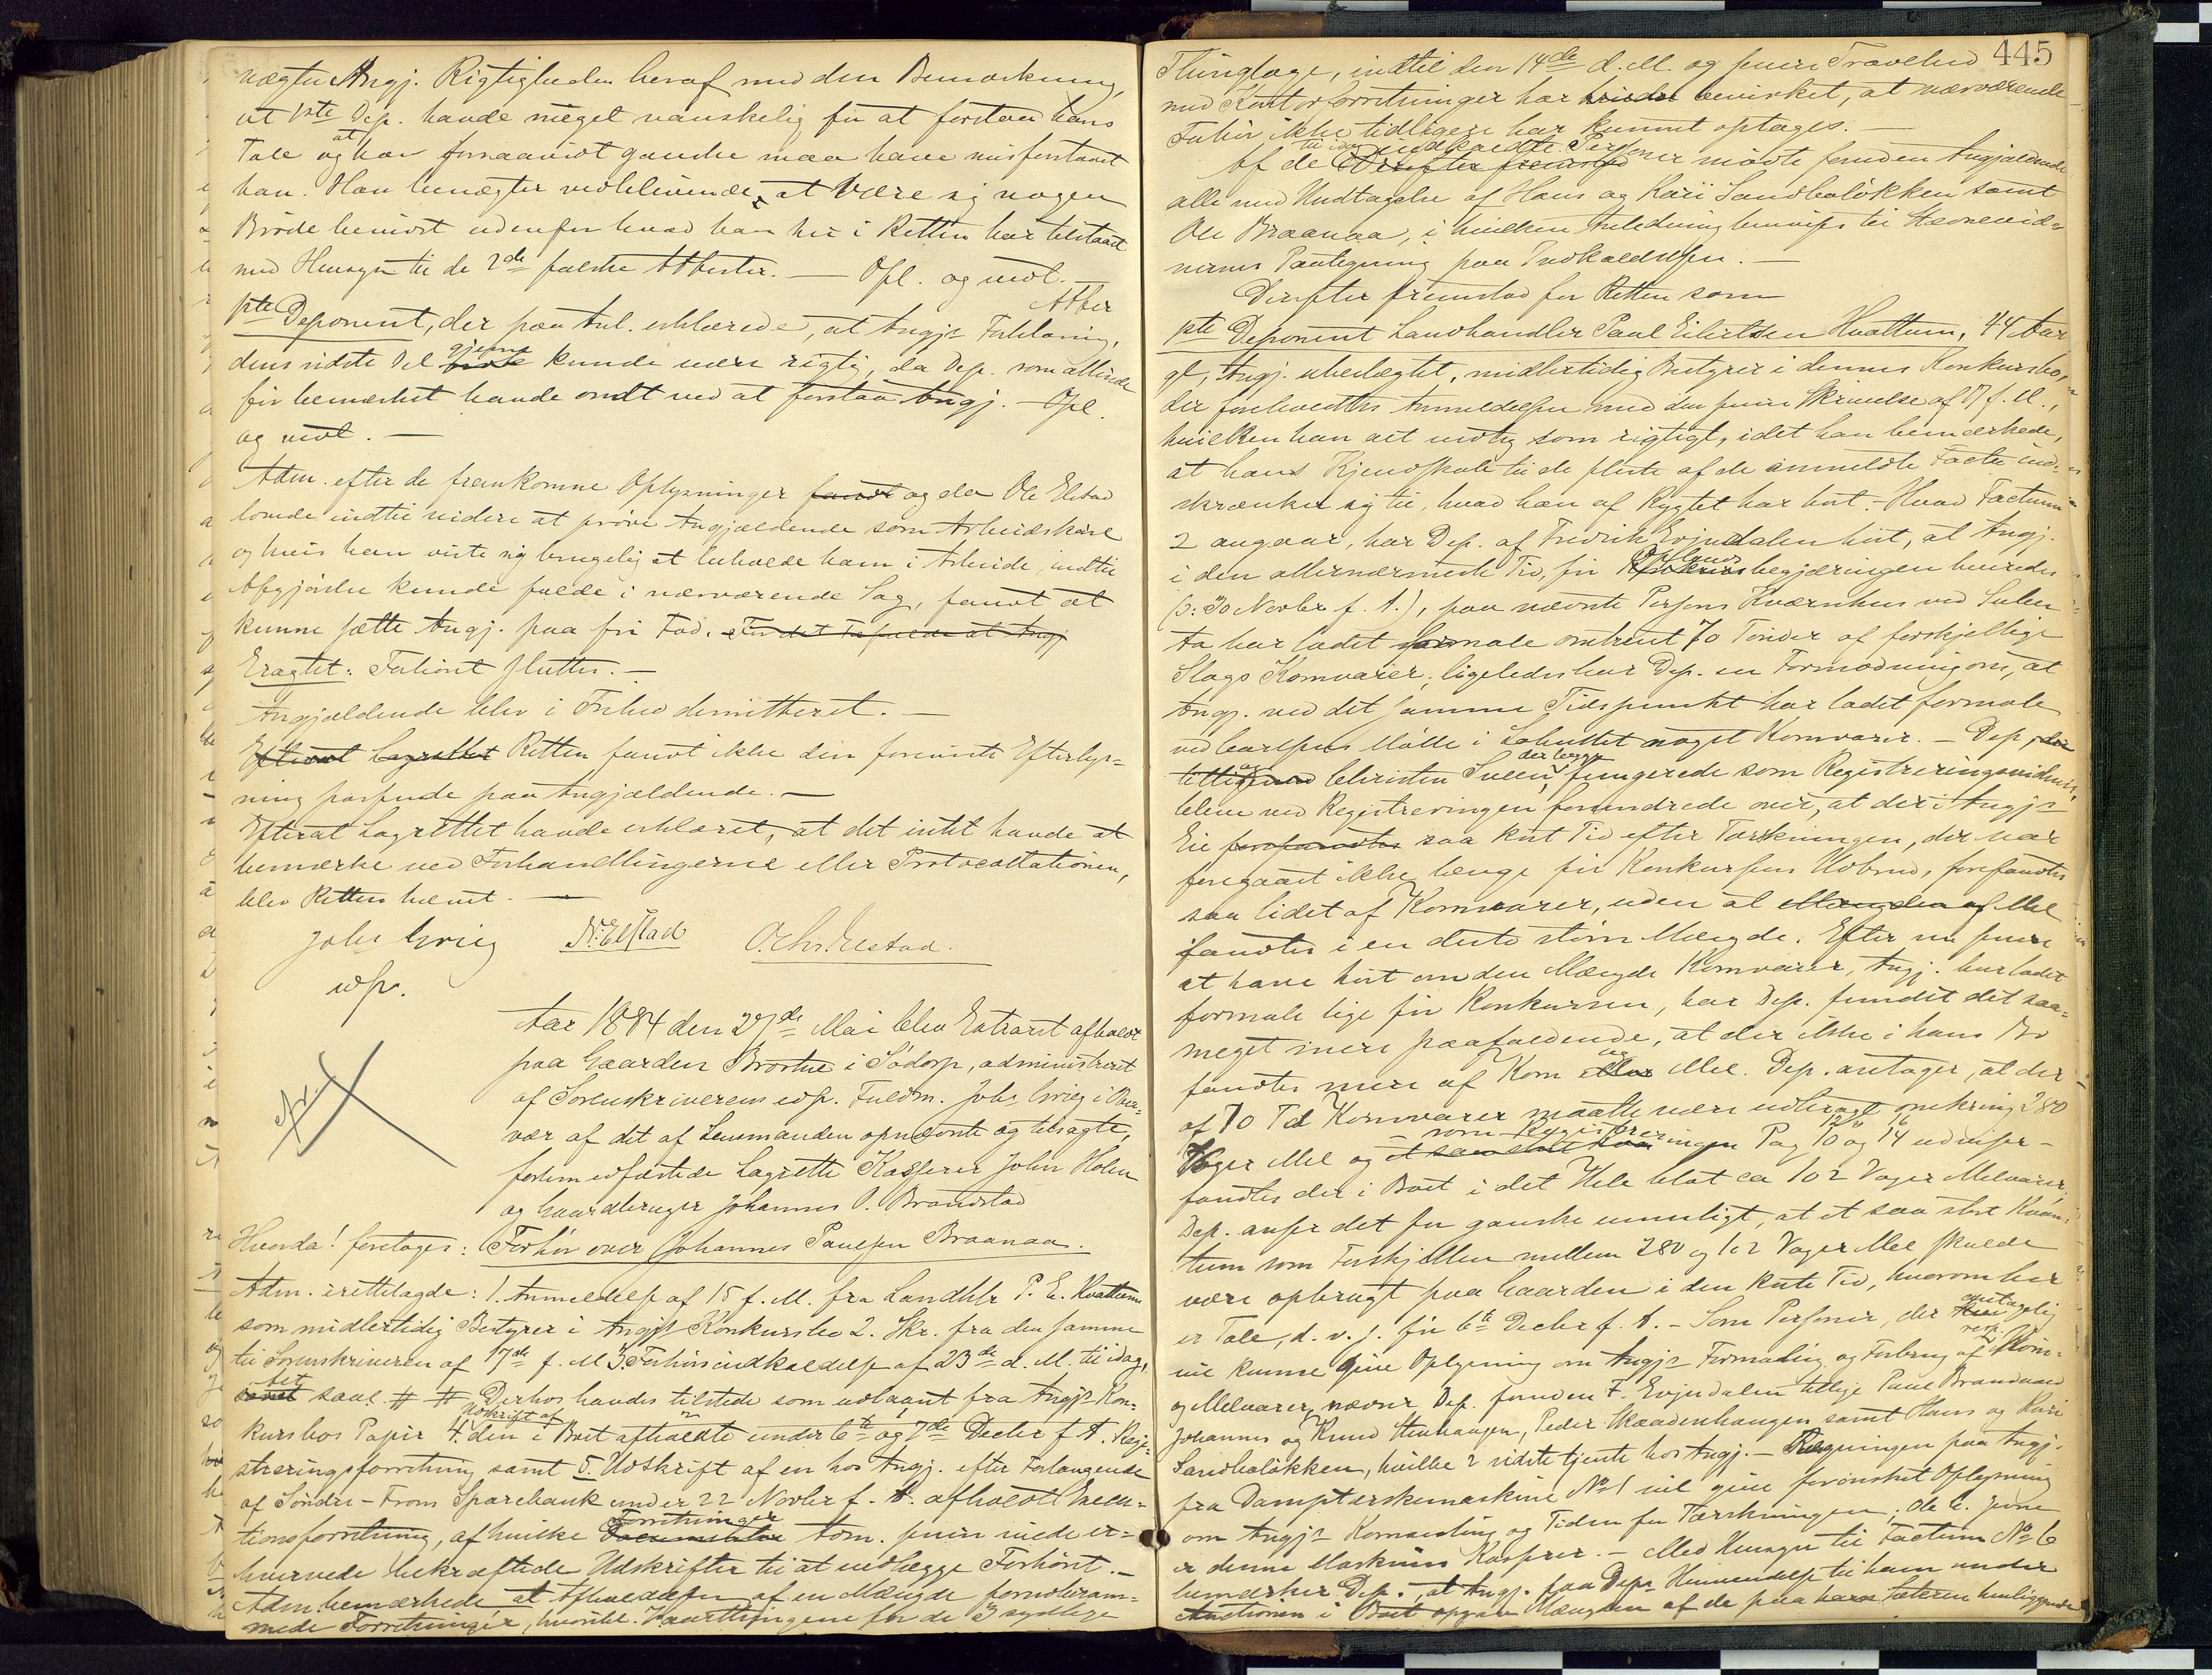 nægter Angj. Rigtigheden heraf med den Bemærkning,
at 1ste Dep. havde meget vanskelig for at forstaa hans
Tale og at han forsaavidt ganske maa have misforstaaet
ham. Han benægter vedblivende, at være sig nogen
Brøde bevidst udenfor hvad han her i Retten har tilstaaet
med Hensyn til de 2de falske Attester. — Opl. og vedt. —
Atter
1ste Deponent, der paa Anl. erklærede, at Angjs Forklaring,
dens sidste Del gjerne kunde være rigtig, da Dep. som allerede
før bemærket havde ondt ved at forstaa Angj. — Opl.
og vedt. —
Adm. efter de fremkomne Oplysninger fandt og da Ole Elstad
lovede indtil videre at prøve Angjældende som Arbeidskarl
og hvis han viste sig brugelig at beholde ham i Arbeide, indtil
Afgjørelse kunde falde i nærværende Sag, fandt at
kunne sætte Angj. paa fri Fod.
Eragtet: Forhøret sluttes. —
Angjældende blev i Frihed demitteret. —
Efterat Lagrettet Retten fandt ikke den forenede Efterlys-
ning passende paa Angjældende. —
Efterat Lagrettet havde erklæret, at det intet havde at
bemærke ved Forhandlingerne eller Protocollationen,
blev Retten hævet. —
Johs Grieg N. Elstad O. Chr. Elstad.
edsv.
Aar 1884 den 27de Mai blev Extraret afholdt
paa Gaarden Brostue i Sødorp, administreret
af Sorenskriverens edsv. Fuldm. Johs Grieg i Over-
vær af det af Lensmanden opnævnte og tilsagte,
forhen edfæstede Lagrette Kasserer John Holen
og Gaardbruger Johannes O. Brandstad
Hvorda! foretoges: Forhør over Johannes Paulsen Braanaa.
Adm. irettelagde: 1. Anmeldelse af 15 f. M. fra Landhlr P. E. Kvattum
som midlertidig Bestyrer i Angjs Konkursbo 2. Skr. fra den samme
til Sorenskriveren af 17de f. M 3. Forhørsindkaldelse af 23de d. M. til idag,
saal. # # Derhos havdes tilstede som udlaant fra Angjs Kon-
kursbos Papir 4. Udskrift af den i Boet afholdte under 6te og 7de Decbr f. A. Regi-
streringsforretning samt 5. Udskrift af en hos Angj. efter Forlangende
af Søndre-Frons Sparebank under 22 Novbr f. A. afholdt Execu-
tionsforretning, af hvilke Forretninger Adm. senere vilde er-
hvervede bekræftede Udskrifter til at vedlægge Forhøret. —
Adm. bemærkede at Afholdelsen af en Mængde forudberam-
mede Forretninger, hvoribl. Vaarthingene for de 3 sydlige
445
Thinglage, indtil den 14de d. M. og senere Travelhed
med Kontorforretninger har bevirket, at nærværende
Forhør ikke tidligere har kunnet optages. —
Af de til idag indkaldte Personer mødte foruden Angjældende
alle med Undtagelse af Hans og Kari Sandboløkken samt
Ole Braanaa, i hvilken Anledning henvises til Stævnevid-
nernes Paategning paa Indkaldelsen. —
Derefter fremstod for Retten som
1ste Deponent Landhandler Paul Eilertsen Kvattum, 44 Aar
gl, Angj. ubeslægtet, midlertidig Bestyrer i dennes Konkursbo,
der foreholdtes Anmeldelsen med den senere Skrivelse af 17 f. M.,
hvilken han alt vedtog som rigtigt, idet han bemærkede,
at hans Kjendskab til de fleste af de anmeldte Facta ind-
skrænker sig til, hvad han af Rygtet har hørt. — Hvad Factum
2 angaar, har Dep. af Fredrik Evjudalen hørt, at Angj.
i den allernærmeste Tid, før begjæringen herredes
(ɔ: 30 Novbr f. A.), paa nævnte Persons Kværnhus ved Sulen
Aa har ladet formale omtrent 70 Tønder af forskjellige
Slags Kornvarer, ligeledes har Dep. en Formodning om, at
Angj. ved det samme Tidspunkt har ladet formale
ved Mølle i noget Kornvarer. — Dep.,
Christen Sveen, der begge fungerede som Registreringsvidner,
bleve ved Registreringen forundrede over, at der i Angjs
Eie saa kort Tid efter Tærskningen, der var
foregaaet ikke længe før Konkursens Udbrud, forefandtes
saa lidet af Kornvarer, uden at Mængden af Mel
fandtes i en desto større Mængde. Efter nu senere
at have hørt om den Mængde Kornvarer, Angj. har ladet
formale lige før Konkursen, har Dep. fundet det saa-
meget mere paafaldende, at der ikke i hans Bo
fandtes mere af Korn og Mel. Dep. antager, at der
af 70 Td Kornvarer maatte være udbragt omkring 280
Voger Mel og — som Registreringen Pag 10 og 14 udviser —
fandtes der i Boet i det Hele blot ca 102 Voger Melvarer;
Dep. anser det for ganske umuligt, at et saa stort Kvan-
tum som Forskjellen mellem 280 og 102 Voger Mel skulde
være opbrugt paa Gaarden i den korte Tid, hvorom her
er Tale, d. v. s. før 6te Decbr f. A. — Som Personer, der antagelig
vil kunne give Oplysning om Angjs Formaling og Forbrug af Korn-
og Melvarer, nævner Dep. foruden F. Evjudalen tillige Paul Brandvold
Johannes og Knud Stenhaugen, Peder Skaadenhaugen samt Hans og Kari
Sandboløkken, hvilke 2 sidste tjente hos Angj. — Regningen paa Angj.
fra Damptærskemaskine No 1 vil give forønsket Oplysning
om Angjs Kornavling og Tiden for Tærskningen; Ole E. Jevne
er denne Maskines Kasserer. — Med Hensyn til Factum No 6
bemærker Dep., at Angj. paa Deps Henvendelse til ham under
Auctionen i Boet opgav Mængden af de paa hans Sæteren henliggende